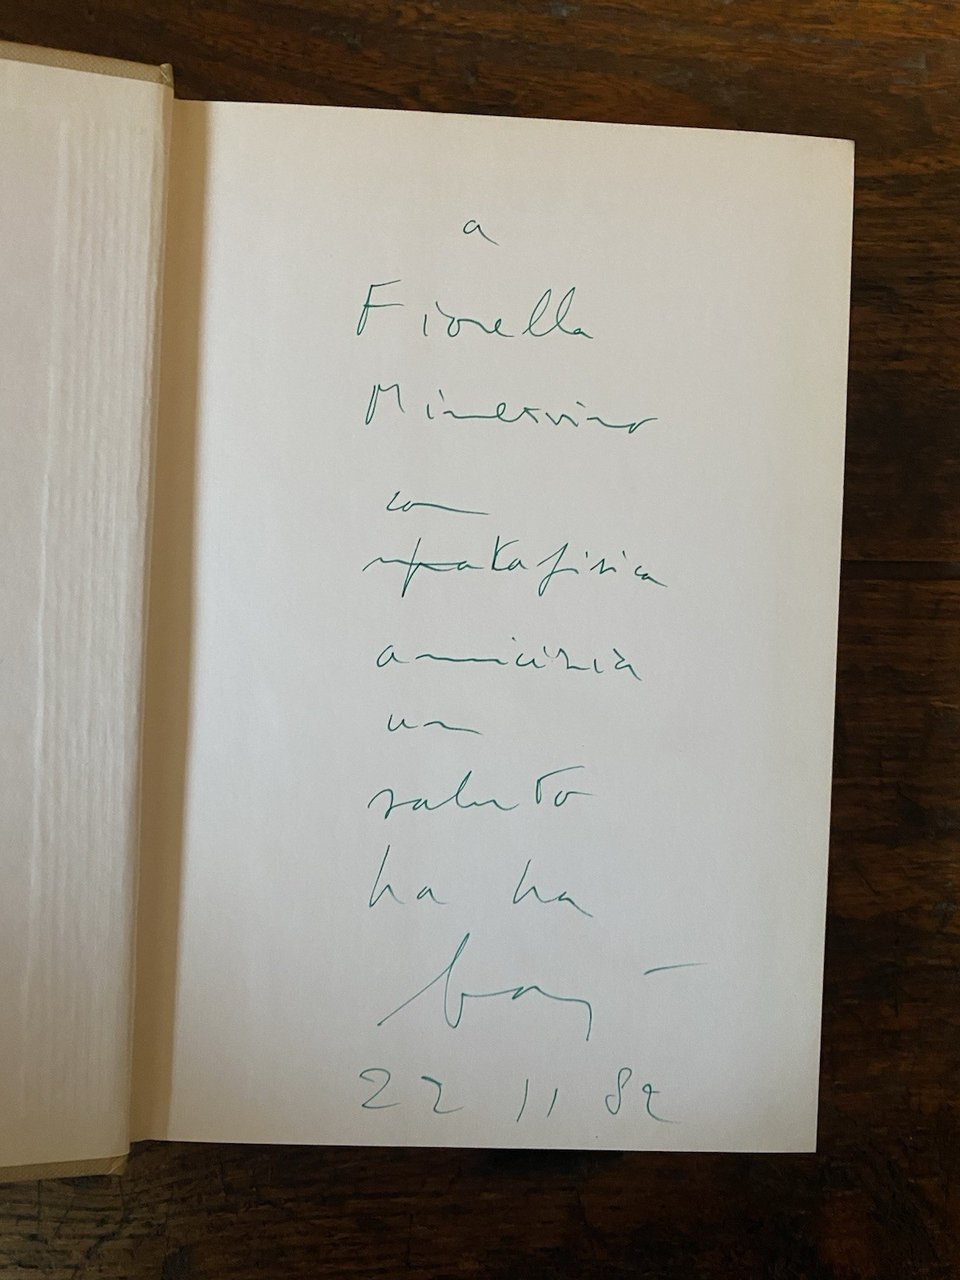 a
Fiorella
Minervino
con
patafisica
amicizia
un
saluto
ha ha
baj
22 11 82